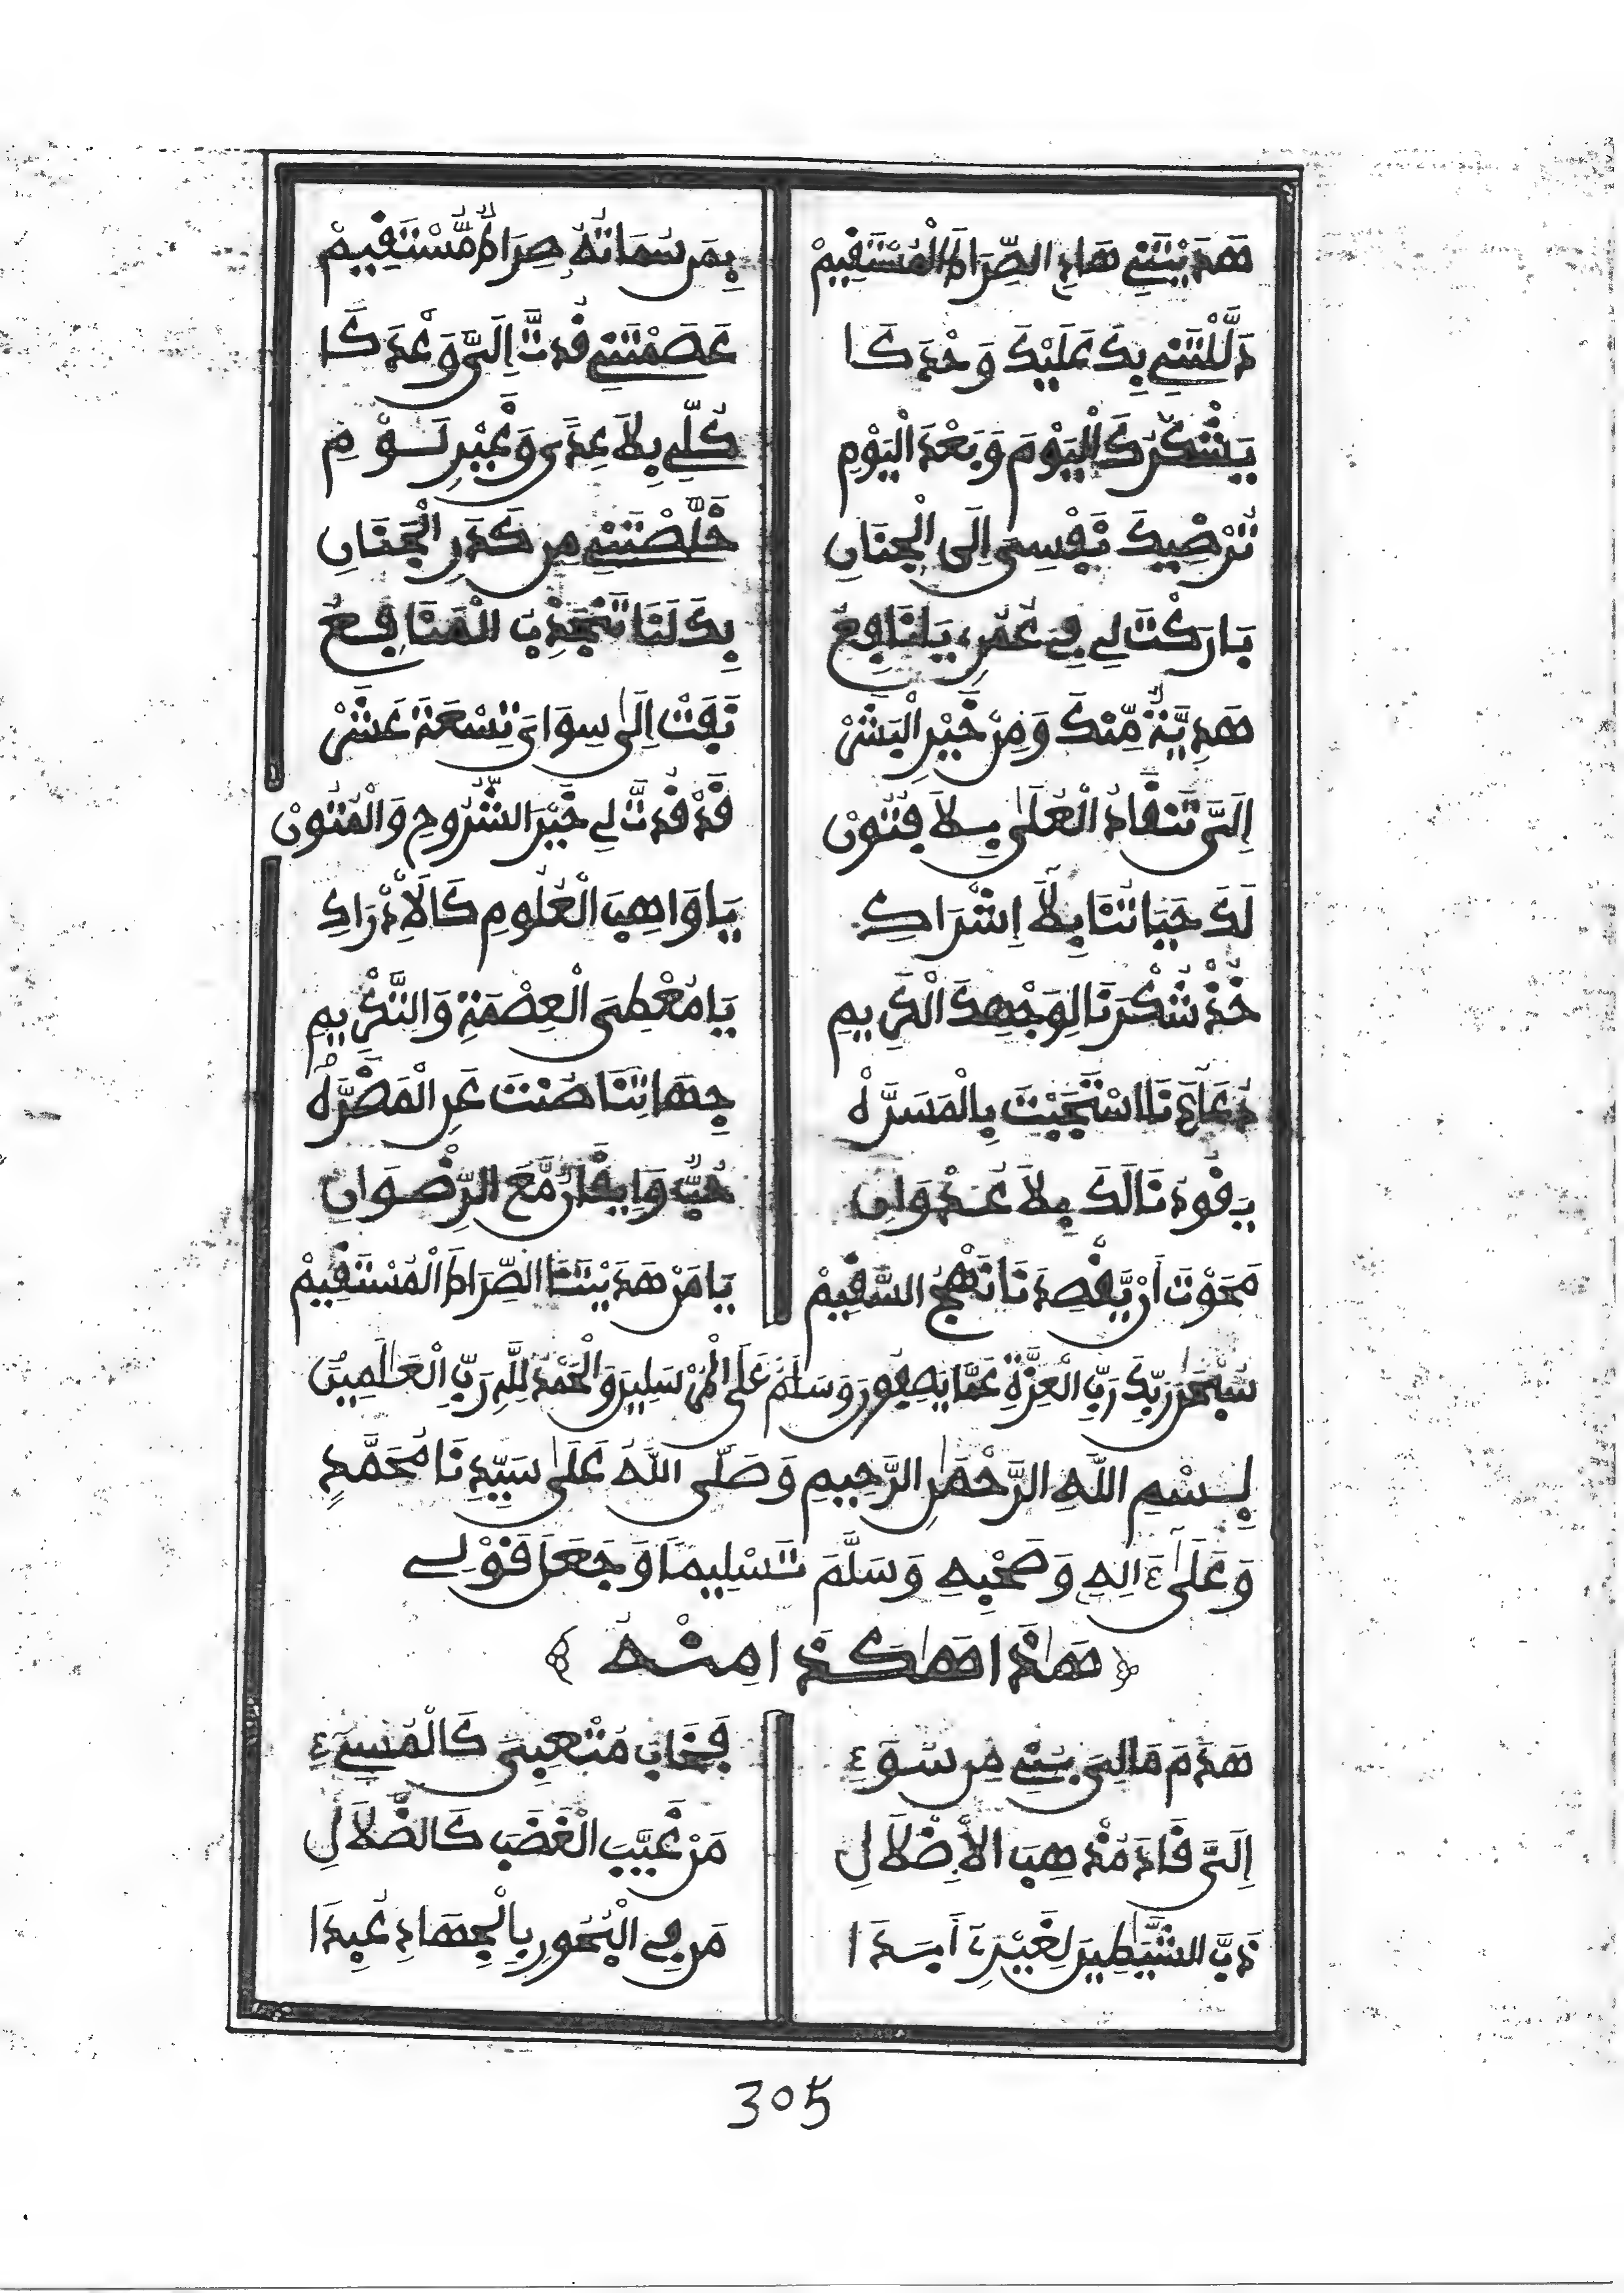 هَدَيْتَنِي هَادِ الصِّرَاطَ الْمُسْتَقِيمْ بِمَن سُمَاتُهُ صِرَاطٌ مُّسْتَقِيمْ
دَلَّلْتَنِي بِكَ عَلَيْكَ وَحْدَكَا عَصَمْتَنِي قُدتَّ إِلَيَّ وَعْدَكَا
يَشْكُرُكَ الْيَوْمَ وَبَعْدَ الْيَوْمِ كُلِّي بِلاَ عِدًى وَغَيْرِ لَوْمِ
تُرْضِيكَ نَفْسِي إِلَى الْجِنَانِ خَلَّصْتَنِي مِن كَدَرِ الْجَنَانِ
بَارَكْتَ لِي فِي عُمُرِي يَا نَافِعُ بِكَ لَنَا تَنْجَذِبُ الْمَنَافِعُ
هَدِيَّةٌ مِّنْكَ وَمِنْ خَيْرِ الْبَشَرْ نَفَتْ إِلَى سِوَايَ تِسْعَةَ عَشَرْ
إِلَيَّ تَنقَادُ الْعُلَى بِلاَ فُتُونْ قَدْ قُدتَّ لِي خَيْرَ الشُّرُوحِ وَالْمُتُونْ
لَكَ حَيَاتُنَا بِلاَ إِشْرَاكِ يَا وَاهِبَ الْعُلُومِ كَالْإِدْرَاكِ
خُذْ شُكْرَنَا لِوَجْهِكَ الْكَرِيمِ يَا مُعْطِيَ الْعِصْمَةِ وَالتَّكْرِيمِ
دُعَاءَنَا اسْتَجَبْتَ بِالْمَسَرَّهْ جِهَاتِنَا صُنْتَ عَنِ الْمَضَرَّهْ
يَقُودُنَا لَكَ بِلاَ عُدْوَانِ حُبٌّ وَإِيقَانٌ مَّعَ الرِّضْوَانِ
مَحَوْتَ أَنْ يَّقْصِدَنَا نَهْجُ السَّقِيمْ يَا مَنْ هَدَيْتَنَا الصِّرَاطَ الْمُسْتَقِيمْ
سُبْحَٰنَ رَبِّكَ رَبِّ الْعِزَّةِ عَمَّا يَصِفُونَ وَسَلَٰمٌ عَلَى الْمُرْسَلِينَ وَالْحَمْدُ لِلَّهِ رَبِّ الْعَٰلَمِينَ
بِسْمِ اللَّهِ الرَّحْمَٰنِ الرَّحِيمِ وَصَلَّى اللَّهُ عَلَى سَيِّدِنَا مُحَمَّدٍ
وَعَلَى ءَالِهِ وَصَحْبِهِ وَسَلَّمَ تَسْلِيمًا وَجَعَلَ قَوْلِي
﴿ هَٰذَا هَٰكَذَا مِنْهُ ﴾
هَدَمَ مَا لِي مِن سُوءِ فَخَابَ مُتْعِبِي كَالْمُسِيءِ
إِلَيَّ قَادَ مُذْهِبَ الْإِضْلاَلِ مَنْ غَيَّبَ الْغَضَبَ كَالضَّلاَلِ
ذَبَّ الشَّيَٰطِينَ لِغَيْرِي أَبَدَا مَن فِي الْبُحُورِ بِالْجِهَادِ عُبِدَا
305